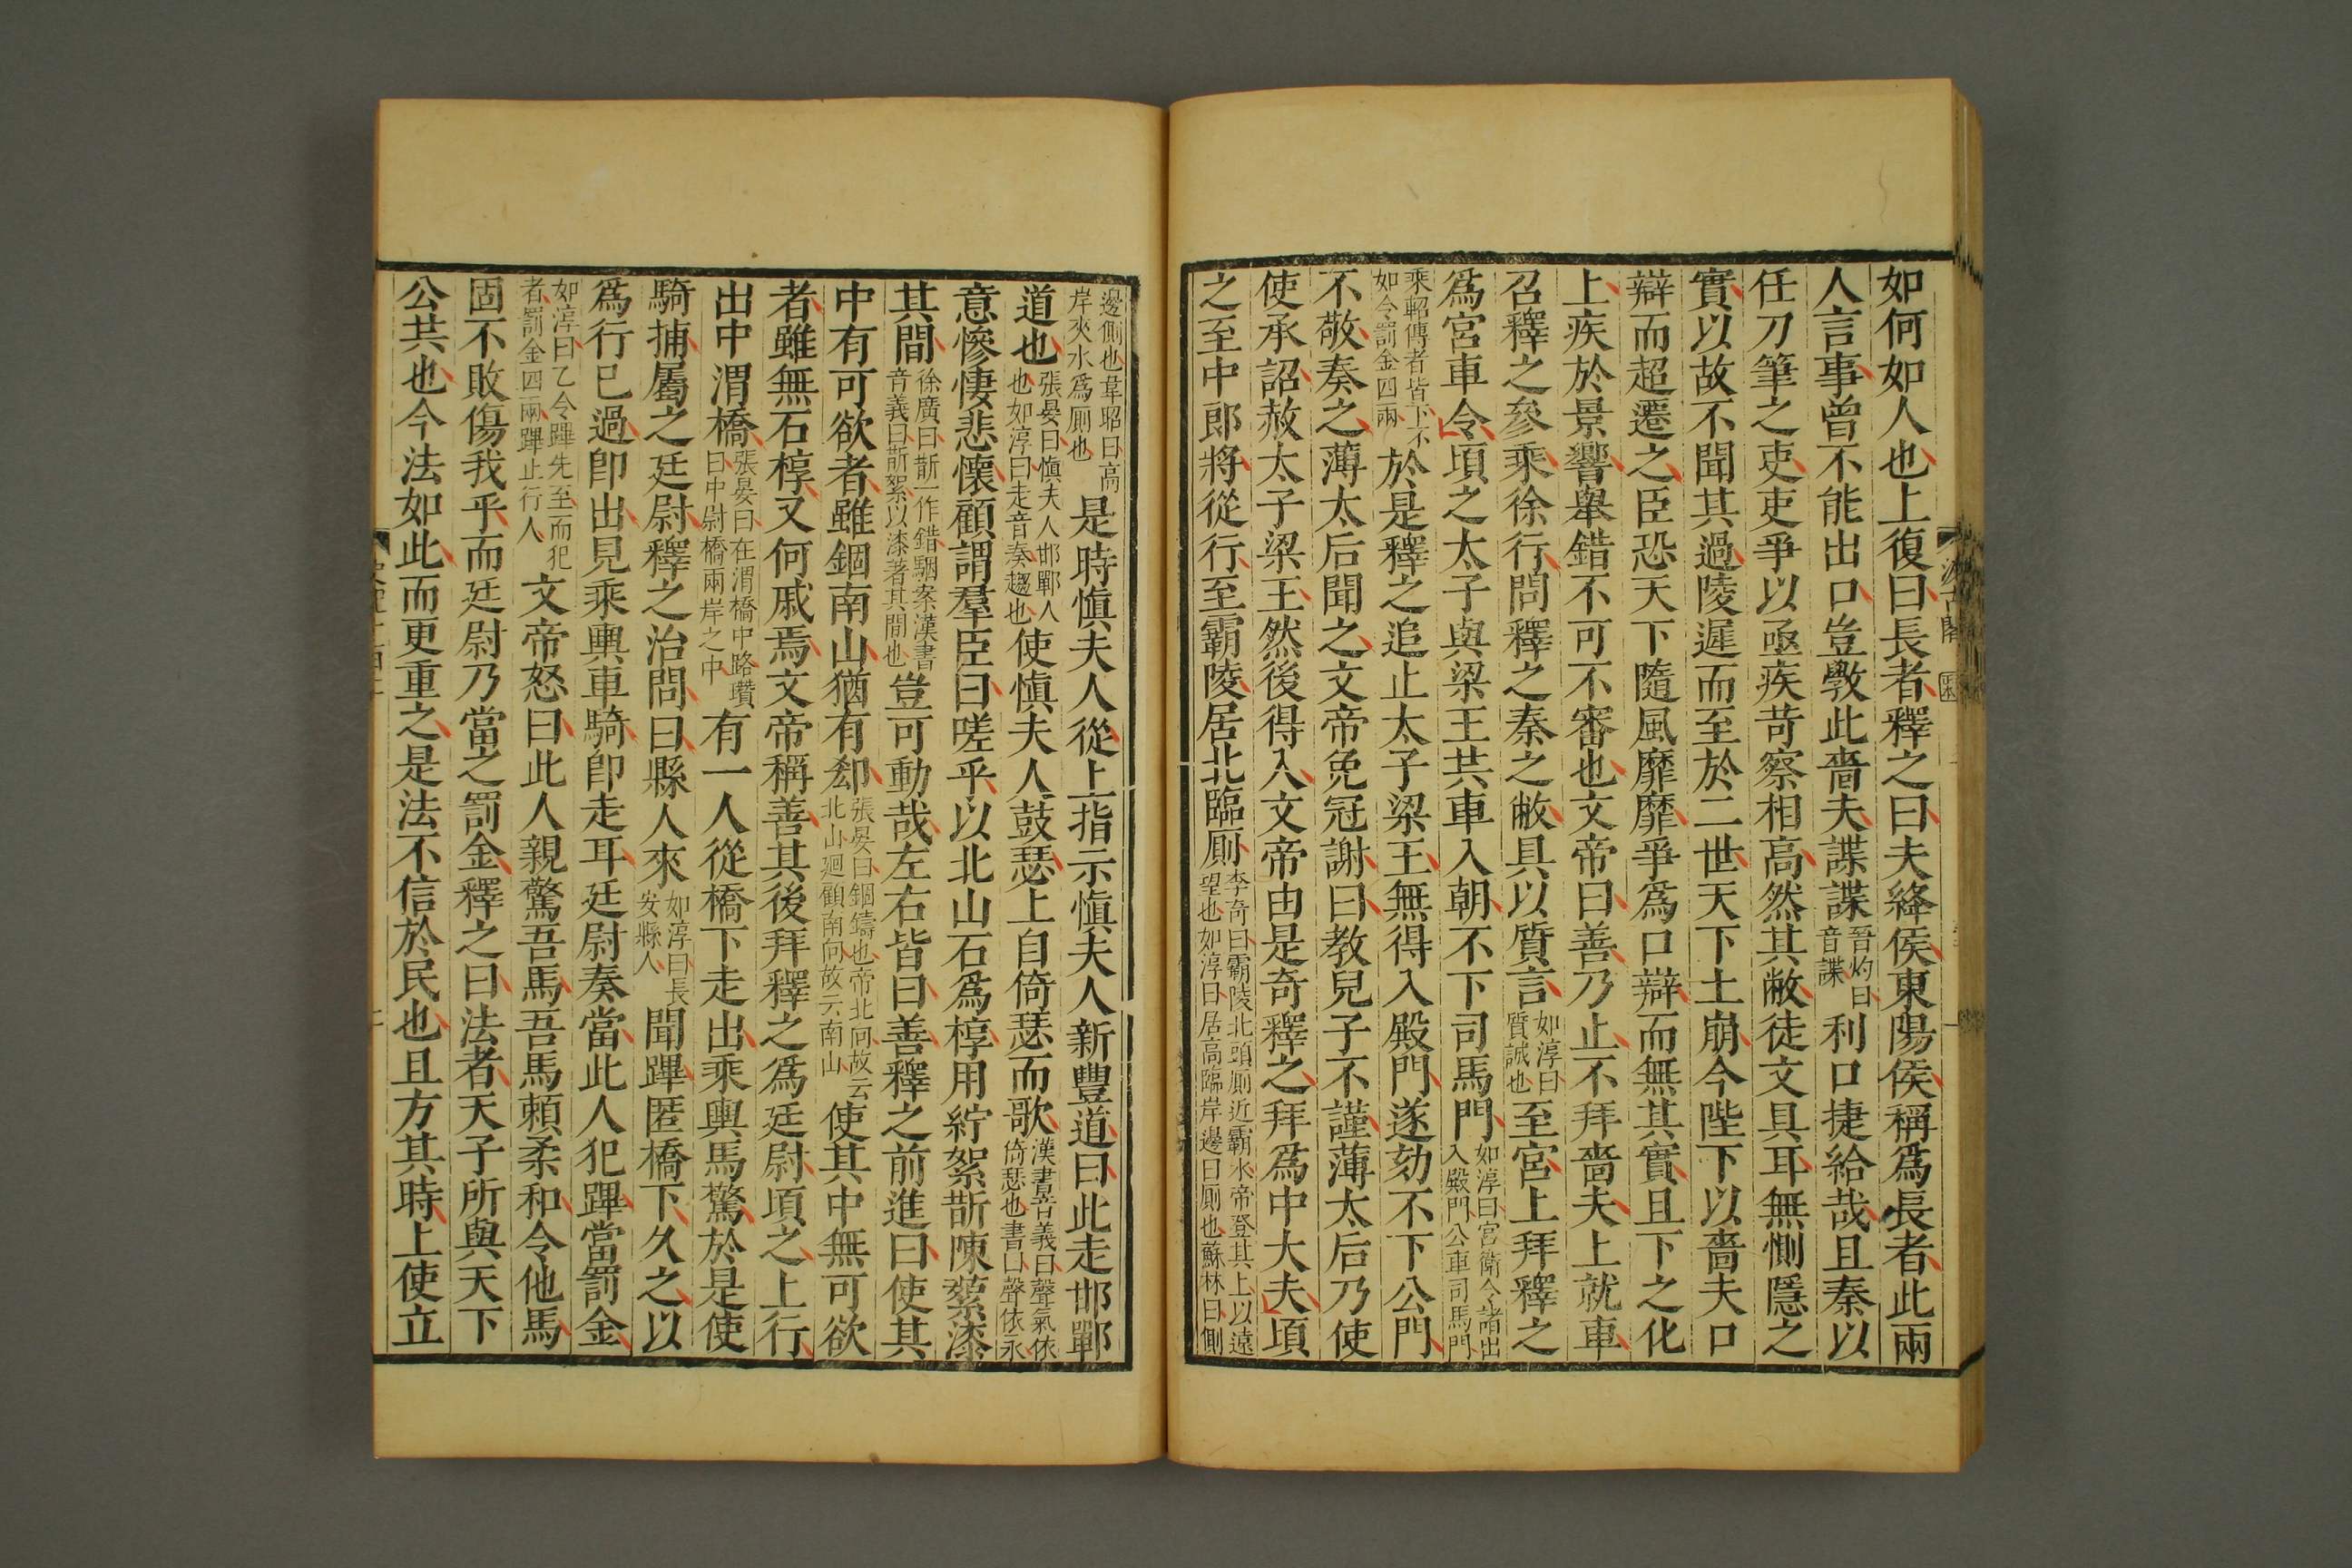 汲古閣
如何如人也上復曰長者釋之曰夫絳侯東陽侯稱爲長者此兩
人言事曾不能出口豈斆此嗇夫諜諜晉灼曰音諜利口捷給哉且秦以
任刀筆之吏吏爭以亟疾苛察相高然其敝徒文具耳無惻隱之
實以故不聞其過陵遲而至於二世天下土崩今陛下以嗇夫口
辯而超遷之臣恐天下隨風靡靡爭爲口辯而無其實且下之化
上疾於景響舉錯不可不審也文帝曰善乃止不拜嗇夫上就車
召釋之參乘徐行問釋之秦之敝具以質言如淳曰質誠也至宮上拜釋之
爲宮車令頃之太子與梁王共車入朝不下司馬門如淳曰宮衛令諸出入殿門公車司馬門
乘軺傳者皆下不如令罰金四兩於是釋之追止太子梁王無得入殿門遂劾不下公門
不敬奏之薄太后聞之文帝免冠謝曰教兒子不謹薄太后乃使
使承詔赦太子梁王然後得入文帝由是奇釋之拜爲中大夫頃
之至中郎將從行至霸陵居北臨廁李奇曰霸陵北頭廁近霸水帝登其上以遠望也如淳曰居高臨岸邊曰廁也蘇林曰側
邊側也韋昭曰高岸夾水爲廁也是時慎夫人從上指示慎夫人新豐道曰此走邯鄲
道也張晏曰慎夫人邯鄲人也如淳曰走音奏趨也使慎夫人鼓瑟上自倚瑟而歌漢書音義曰聲氣依倚瑟也書曰聲依永
意慘悽悲懷顧謂羣臣曰嗟乎以北山石爲椁用紵絮斮陳蘩漆
其間徐廣曰斮一作錯駰案漢書音義曰斮絮以漆著其間也豈可動哉左右皆曰善釋之前進曰使其
中有可欲者雖錮南山猶有郄張晏曰錮鑄也帝北向故云北山廻顧南向故云南山使其中無可欲
者雖無石椁又何戚焉文帝稱善其後拜釋之爲廷尉頃之上行
出中渭橋張晏曰在渭橋中路瓚曰中尉橋兩岸之中有一人從橋下走出乘輿馬驚於是使
騎捕屬之廷尉釋之治問曰縣人來如淳曰長安縣人聞蹕匿橋下久之以
爲行已過卽出見乘輿車騎卽走耳廷尉奏當此人犯蹕當罰金
如淳曰乙令蹕先至而犯者罰金四兩蹕止行人文帝怒曰此人親驚吾馬吾馬賴柔和令他馬
固不敗傷我乎而廷尉乃當之罰金釋之曰法者天子所與天下
公共也今法如此而更重之是法不信於民也且方其時上使立